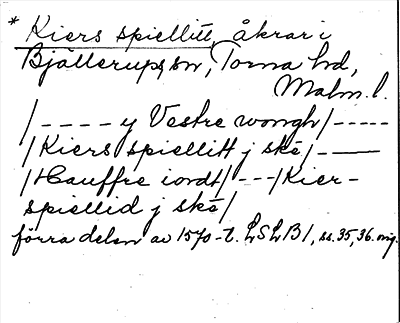 * Kiers spiellitt, åkrar i
Bjällerups sn, Torna hd,
Malm. l.
/ - - - - y Vestre wongh / - - - - -
/ Kiers spiellitt j ské / - ——
/ Hauffre iordt / - - - / Kier-
spiellid j ské /
förra delen av 1570-t. LSLB 1, ss. 35, 36. orig.